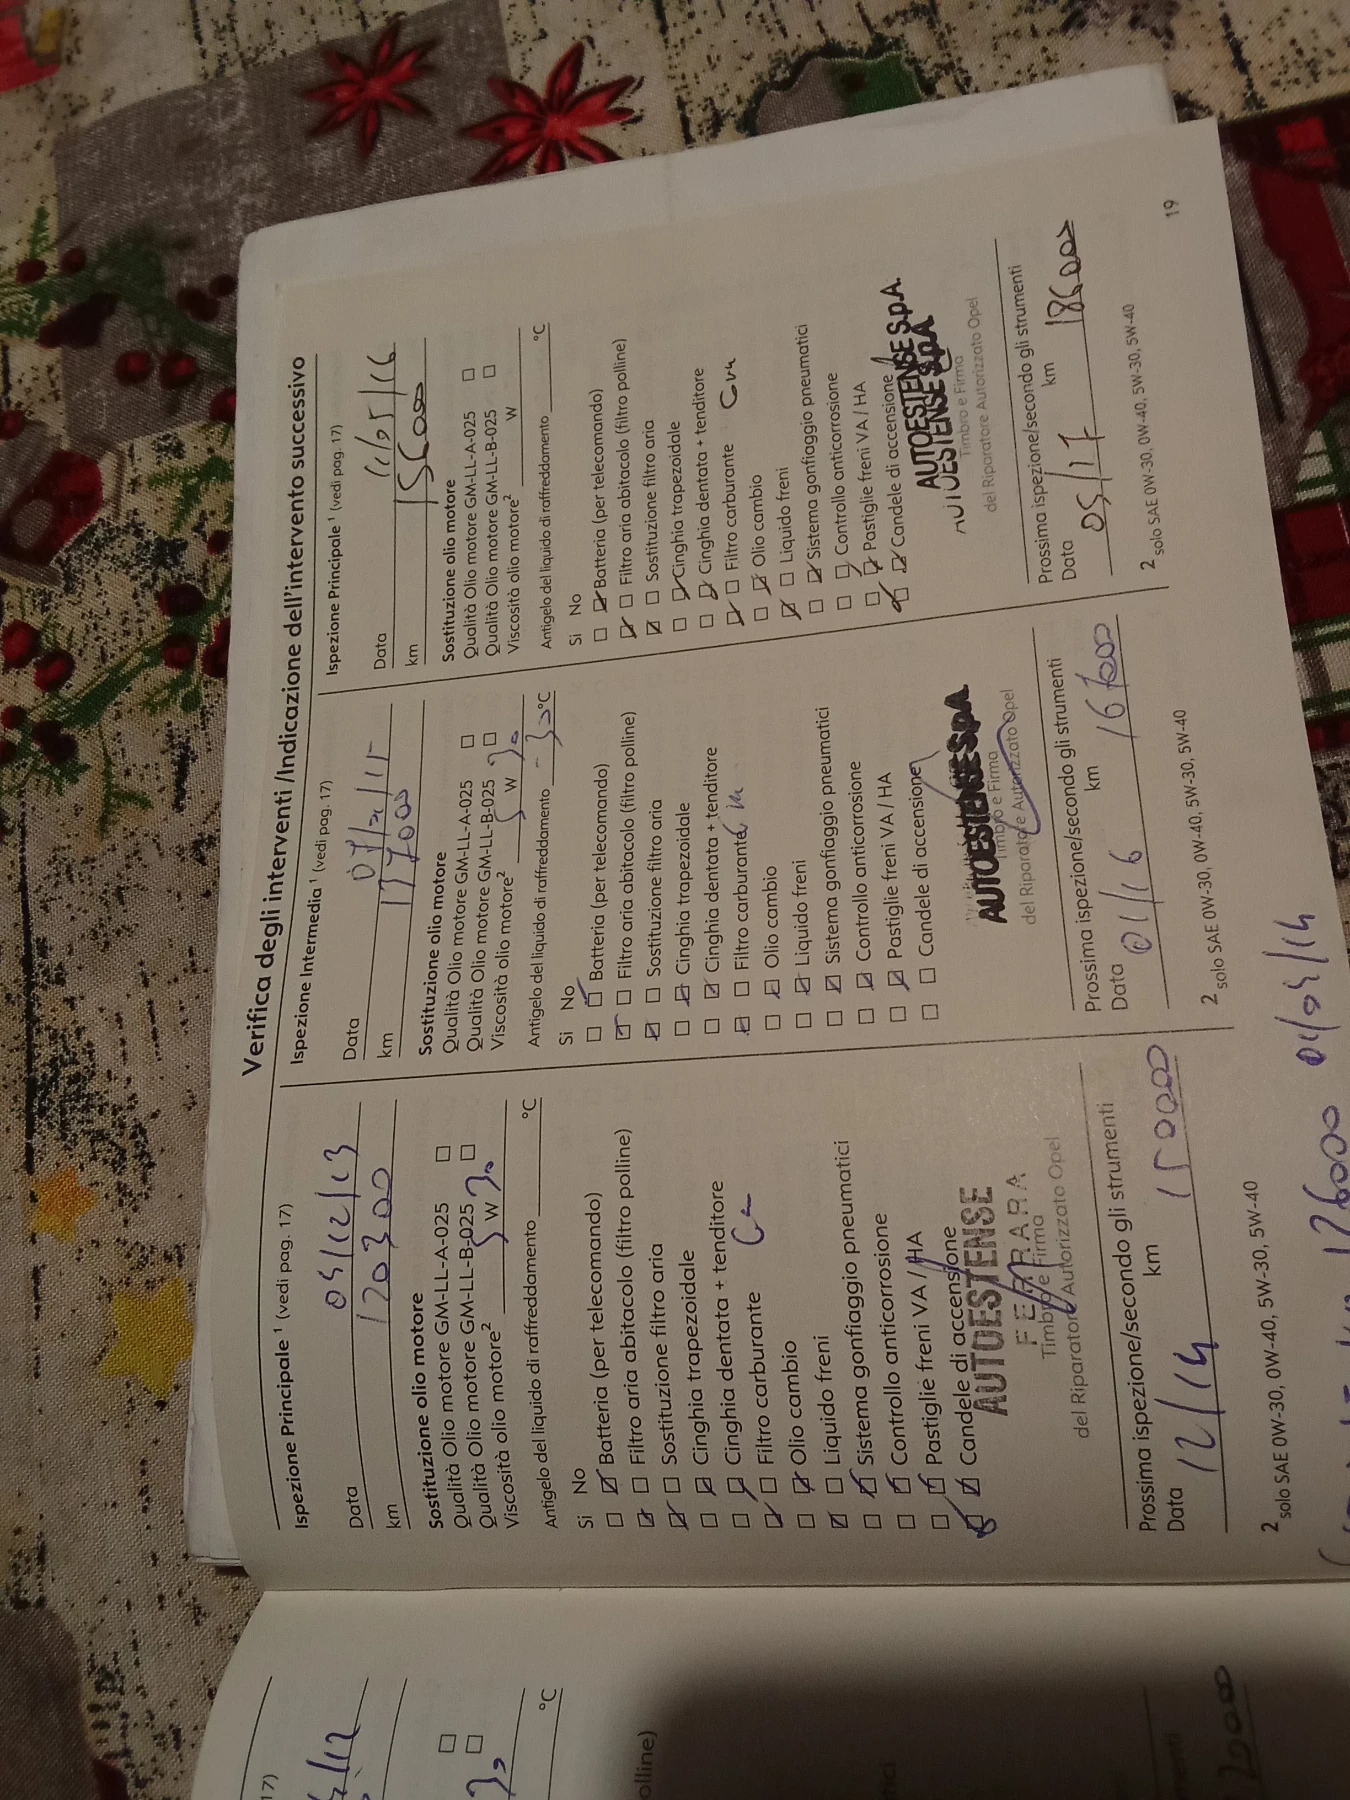 Verifica degli interventi /Indicazione dell'intervento successivo
Ispezione Principale ¹ (vedi pag. 17)
Data 05/12/13
km 120300
Sostituzione olio motore
Qualità Olio motore GM-LL-A-025 □
Qualità Olio motore GM-LL-B-025 □
Viscosità olio motore² 5 W 30
Antigelo del liquido di raffreddamento °C
Si No
Batteria (per telecomando)
Filtro aria abitacolo (filtro polline)
Sostituzione filtro aria
Cinghia trapezoidale
Cinghia dentata + tenditore
Filtro carburante
Olio cambio
Liquido freni
Sistema gonfiaggio pneumatici
Controllo anticorrosione
Pastiglie freni VA / HA
Candele di accensione
AUTOESTENSE
FERRARA
Timbro e Firma
del Riparatore Autorizzato Opel
Prossima ispezione/secondo gli strumenti
Data km
12/14 150000
2 solo SAE 0W-30, 0W-40, 5W-30, 5W-40
Ispezione Intermedia ¹ (vedi pag. 17)
Data
km
Sostituzione olio motore
Qualità Olio motore GM-LL-A-025 □
Qualità Olio motore GM-LL-B-025 □
Viscosità olio motore² 5 W 30
Antigelo del liquido di raffreddamento -30 °C
Si No
Batteria (per telecomando)
Filtro aria abitacolo (filtro polline)
Sostituzione filtro aria
Cinghia trapezoidale
Cinghia dentata + tenditore
Filtro carburante
Olio cambio
Liquido freni
Sistema gonfiaggio pneumatici
Controllo anticorrosione
Pastiglie freni VA / HA
Candele di accensione
AUTOESTENSE S.p.A.
Timbro e Firma
del Riparatore Autorizzato Opel
Prossima ispezione/secondo gli strumenti
Data km
01/16 167000
2 solo SAE 0W-30, 0W-40, 5W-30, 5W-40
Ispezione Principale ¹ (vedi pag. 17)
Data 11/05/16
km 156000
Sostituzione olio motore
Qualità Olio motore GM-LL-A-025 □
Qualità Olio motore GM-LL-B-025 □
Viscosità olio motore² W
Antigelo del liquido di raffreddamento °C
Si No
Batteria (per telecomando)
Filtro aria abitacolo (filtro polline)
Sostituzione filtro aria
Cinghia trapezoidale
Cinghia dentata + tenditore
Filtro carburante
Olio cambio
Liquido freni
Sistema gonfiaggio pneumatici
Controllo anticorrosione
Pastiglie freni VA / HA
Candele di accensione
AUTOESTENSE S.p.A.
AUTOESTENSE S.p.A.
Timbro e Firma
del Riparatore Autorizzato Opel
Prossima ispezione/secondo gli strumenti
Data km
05/17 186000
2 solo SAE 0W-30, 0W-40, 5W-30, 5W-40
19
126000 01/04/14
17)
/12
°C
olline)